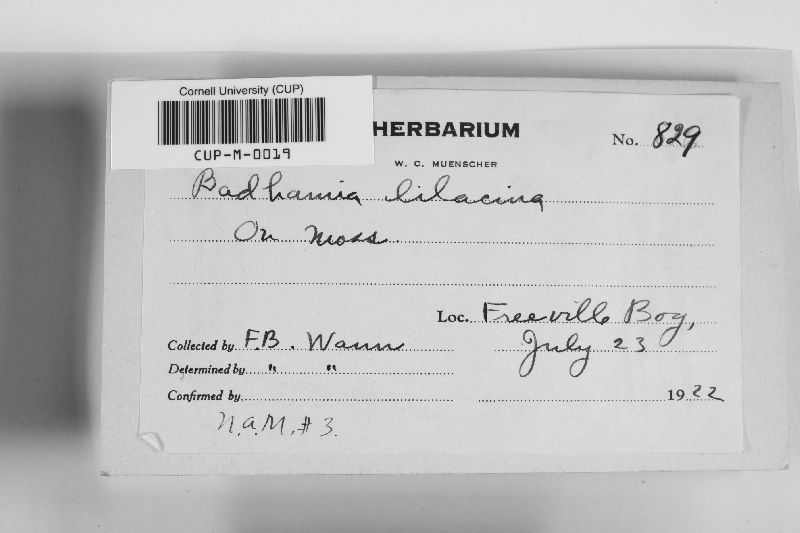 Cornell University (CUP)
CUP-M-0019
HERBARIUM
No. 829
W. C. MUENSCHER
Badhamia lilacina
On moss.
Loc. Freeville Bog,
Collected by F.B. Wann
July 23
Determined by " "
Confirmed by
1922
N.A.M. #3.